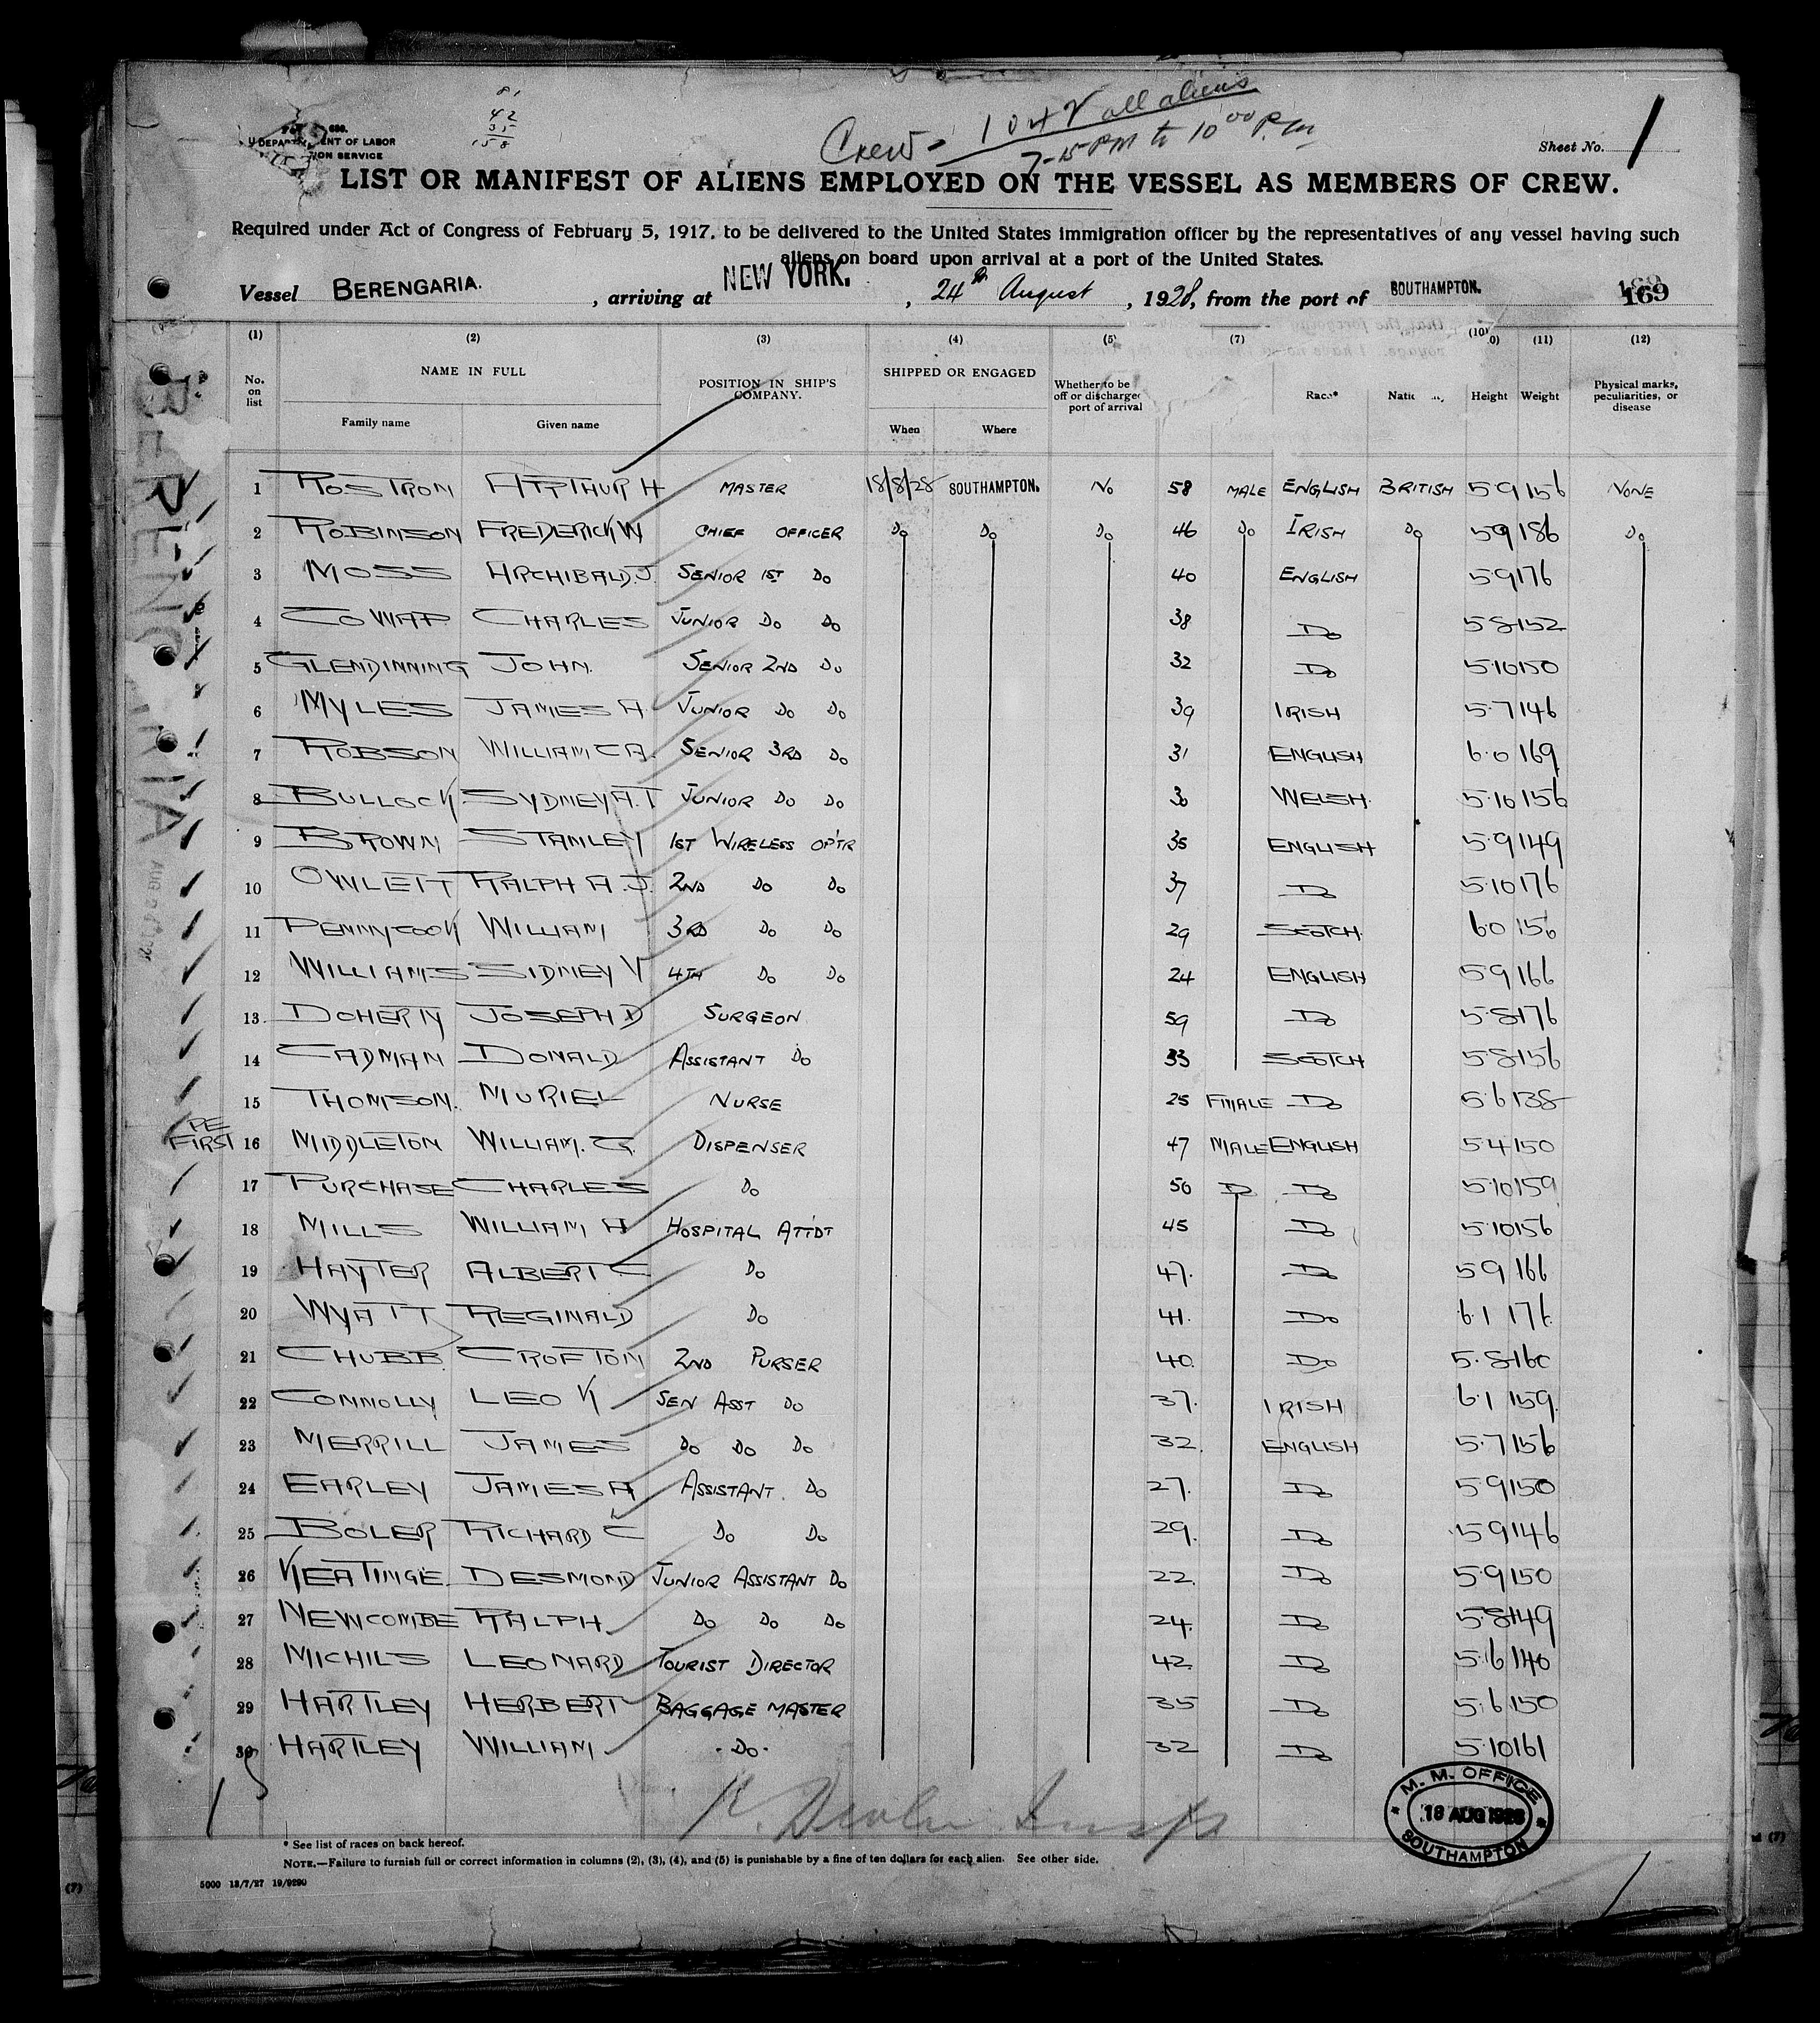 42
35
158
Crew - 1042 all aliens
7-15 PM to 10 00 P.M
686.
U DEPARTMENT OF LABOR
ION SERVICE
Sheet No. 1
LIST OR MANIFEST OF ALIENS EMPLOYED ON THE VESSEL AS MEMBERS OF CREW.
Required under Act of Congress of February 5, 1917, to be delivered to the United States immigration officer by the representatives of any vessel having such
aliens on board upon arrival at a port of the United States.
Vessel BERENGARIA. , arriving at NEW YORK. , 24th August , 1928, from the port of SOUTHAMPTON. 169
(1) (2) (3) (4) (5) (7) (10) (11) (12)
No. on list NAME IN FULL POSITION IN SHIP'S COMPANY. SHIPPED OR ENGAGED Whether to be off or discharge port of arrival Race* Nati Height Weight Physical marks, peculiarities, or disease
Family name Given name When Where
1 ROSTRON ARTHUR H MASTER 18/8/28 SOUTHAMPTON. No 58 MALE ENGLISH BRITISH 5 9 156 NONE
2 ROBINSON FREDERICK W CHIEF OFFICER Do Do Do 46 Do IRISH Do 5 9 186 Do
3 MOSS ARCHIBALD. J. SENIOR 1ST Do 40 ENGLISH 5 9 176
4 COWAP CHARLES JUNIOR Do Do 38 Do 5 8 152
5 GLENDINNING JOHN. SENIOR 2ND Do 32 Do 5.10 150
6 MYLES JAMES A. JUNIOR Do Do 39 IRISH 5.7 146
7 ROBSON WILLIAM C A. SENIOR 3RD Do 31 ENGLISH 6.0 169
8 BULLOCK SYDNEY A. T JUNIOR Do Do 30 WELSH. 5.10 156
9 BROWN STANLEY 1ST WIRELESS OP'TR 35 ENGLISH 5.9 149
10 OWLETT RALPH A. J. 2ND Do Do 37 Do 5.10 176
11 PENNYCOOK WILLIAM 3RD Do Do 29 SCOTCH. 6.0 156
12 WILLIAMS SIDNEY V 4TH Do Do 24 ENGLISH 5 9 166
13 DOHERTY JOSEPH D SURGEON 59 Do 5.8 176
14 CADMAN DONALD ASSISTANT Do 33 SCOTCH 5.8 156
15 THOMSON. MURIEL NURSE 25 FMALE Do 5.6 138
PE
FIRST 16 MIDDLETON WILLIAM. G. DISPENSER 47 MALE ENGLISH 5.4 150
17 PURCHASE CHARLES Do 50 Do Do 5.10 159
18 MILLS WILLIAM H HOSPITAL ATT'DT 45 Do 5.10 156
19 HAYTER ALBERT C Do 47. Do 5 9 166
20 WYATT REGINALD Do 41. Do 6.1 176
21 CHUBB. CROFTON 2ND PURSER 40. Do 5.8 160
22 CONNOLLY LEO K SEN ASST Do 37. IRISH 6.1 159.
23 MERRILL JAMES Do Do Do 32. ENGLISH 5.7 156
24 EARLEY JAMES A ASSISTANT. Do 27. Do 5.9 150
25 BOLER RICHARD C Do Do 29. Do 5 9 146
26 KEATINGE DESMOND JUNIOR ASSISTANT Do 22. Do 5.9 150
27 NEWCOMBE RALPH. Do Do Do 24. Do 5.8 149
28 MICHILS LEONARD TOURIST DIRECTOR 42 Do 5.6 140
29 HARTLEY HERBERT BAGGAGE MASTER 35 Do 5.6 150
30 HARTLEY WILLIAM .Do. 32 Do 5.10 161
M. M. OFFICE
18 AUG 1928
SOUTHAMPTON
* See list of races on back hereof.
NOTE.—Failure to furnish full or correct information in columns (2), (3), (4), and (5) is punishable by a fine of ten dollars for each alien. See other side.
5000 13/7/27 19/9290
BERENGARIA